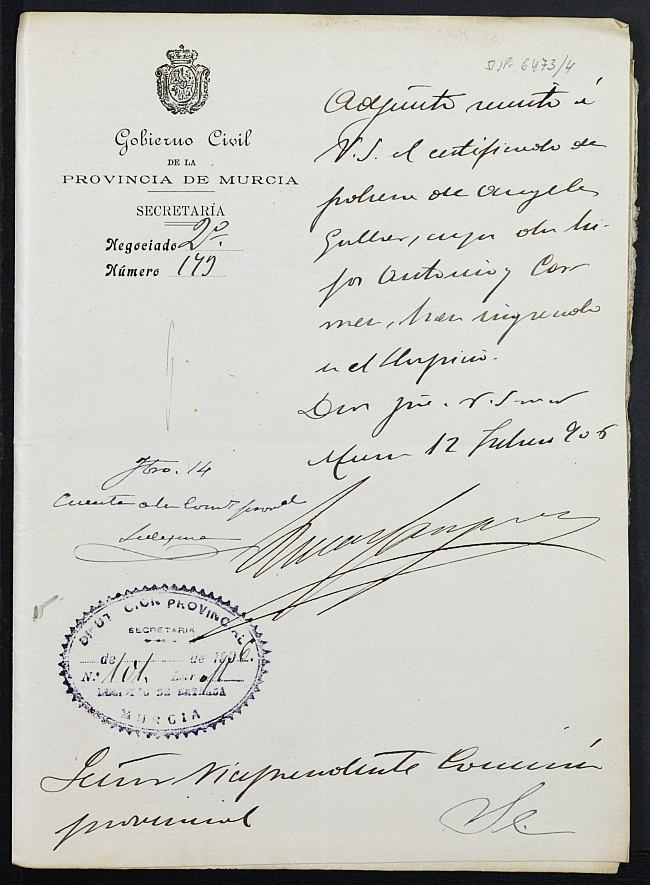 DIP. 6473/4
Gobierno Civil
DE LA
PROVINCIA DE MURCIA
SECRETARÍA
Negociado 2º
Número 179
Adjunto remito á
V.S. el certificado de
pobreza de Angeles
cuyos dos hi-
jos Antonio y Car-
men, han ingresado
en el Hospicio.
Dios gue. a V.S. m. a.
Murcia 12 Febrero 906
Fbro. 14
Cuenta a la Comon. provial
DIPUTACION PROVINCIAL
SECRETARIA
de de 1906.
N.º
REGISTRO DE ENTRADA
MURCIA
Señor Vicepresidente Comisión
provincial